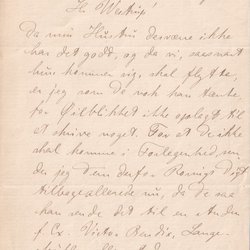 Hr Westrup!
Da min Hustru desværre ikke
har det godt, og da vi, saasnart
hun kommer sig, skal flytte,
er jeg som De nok kan tænke
for Øieblikket ikke oplagt til
at skrive noget. For at De ikke
skal komme i Forlegenhed, sen-
der jeg dem derfor
tilbage allerede nu, da De saa
kan vende dit til en Anden
f. Ex. Victor Bendix, Lange-